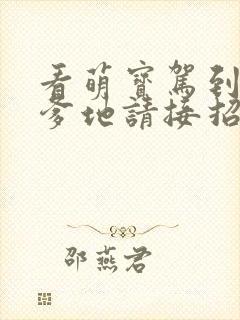 看萌寶駕到
爹地請接招
邵燕君